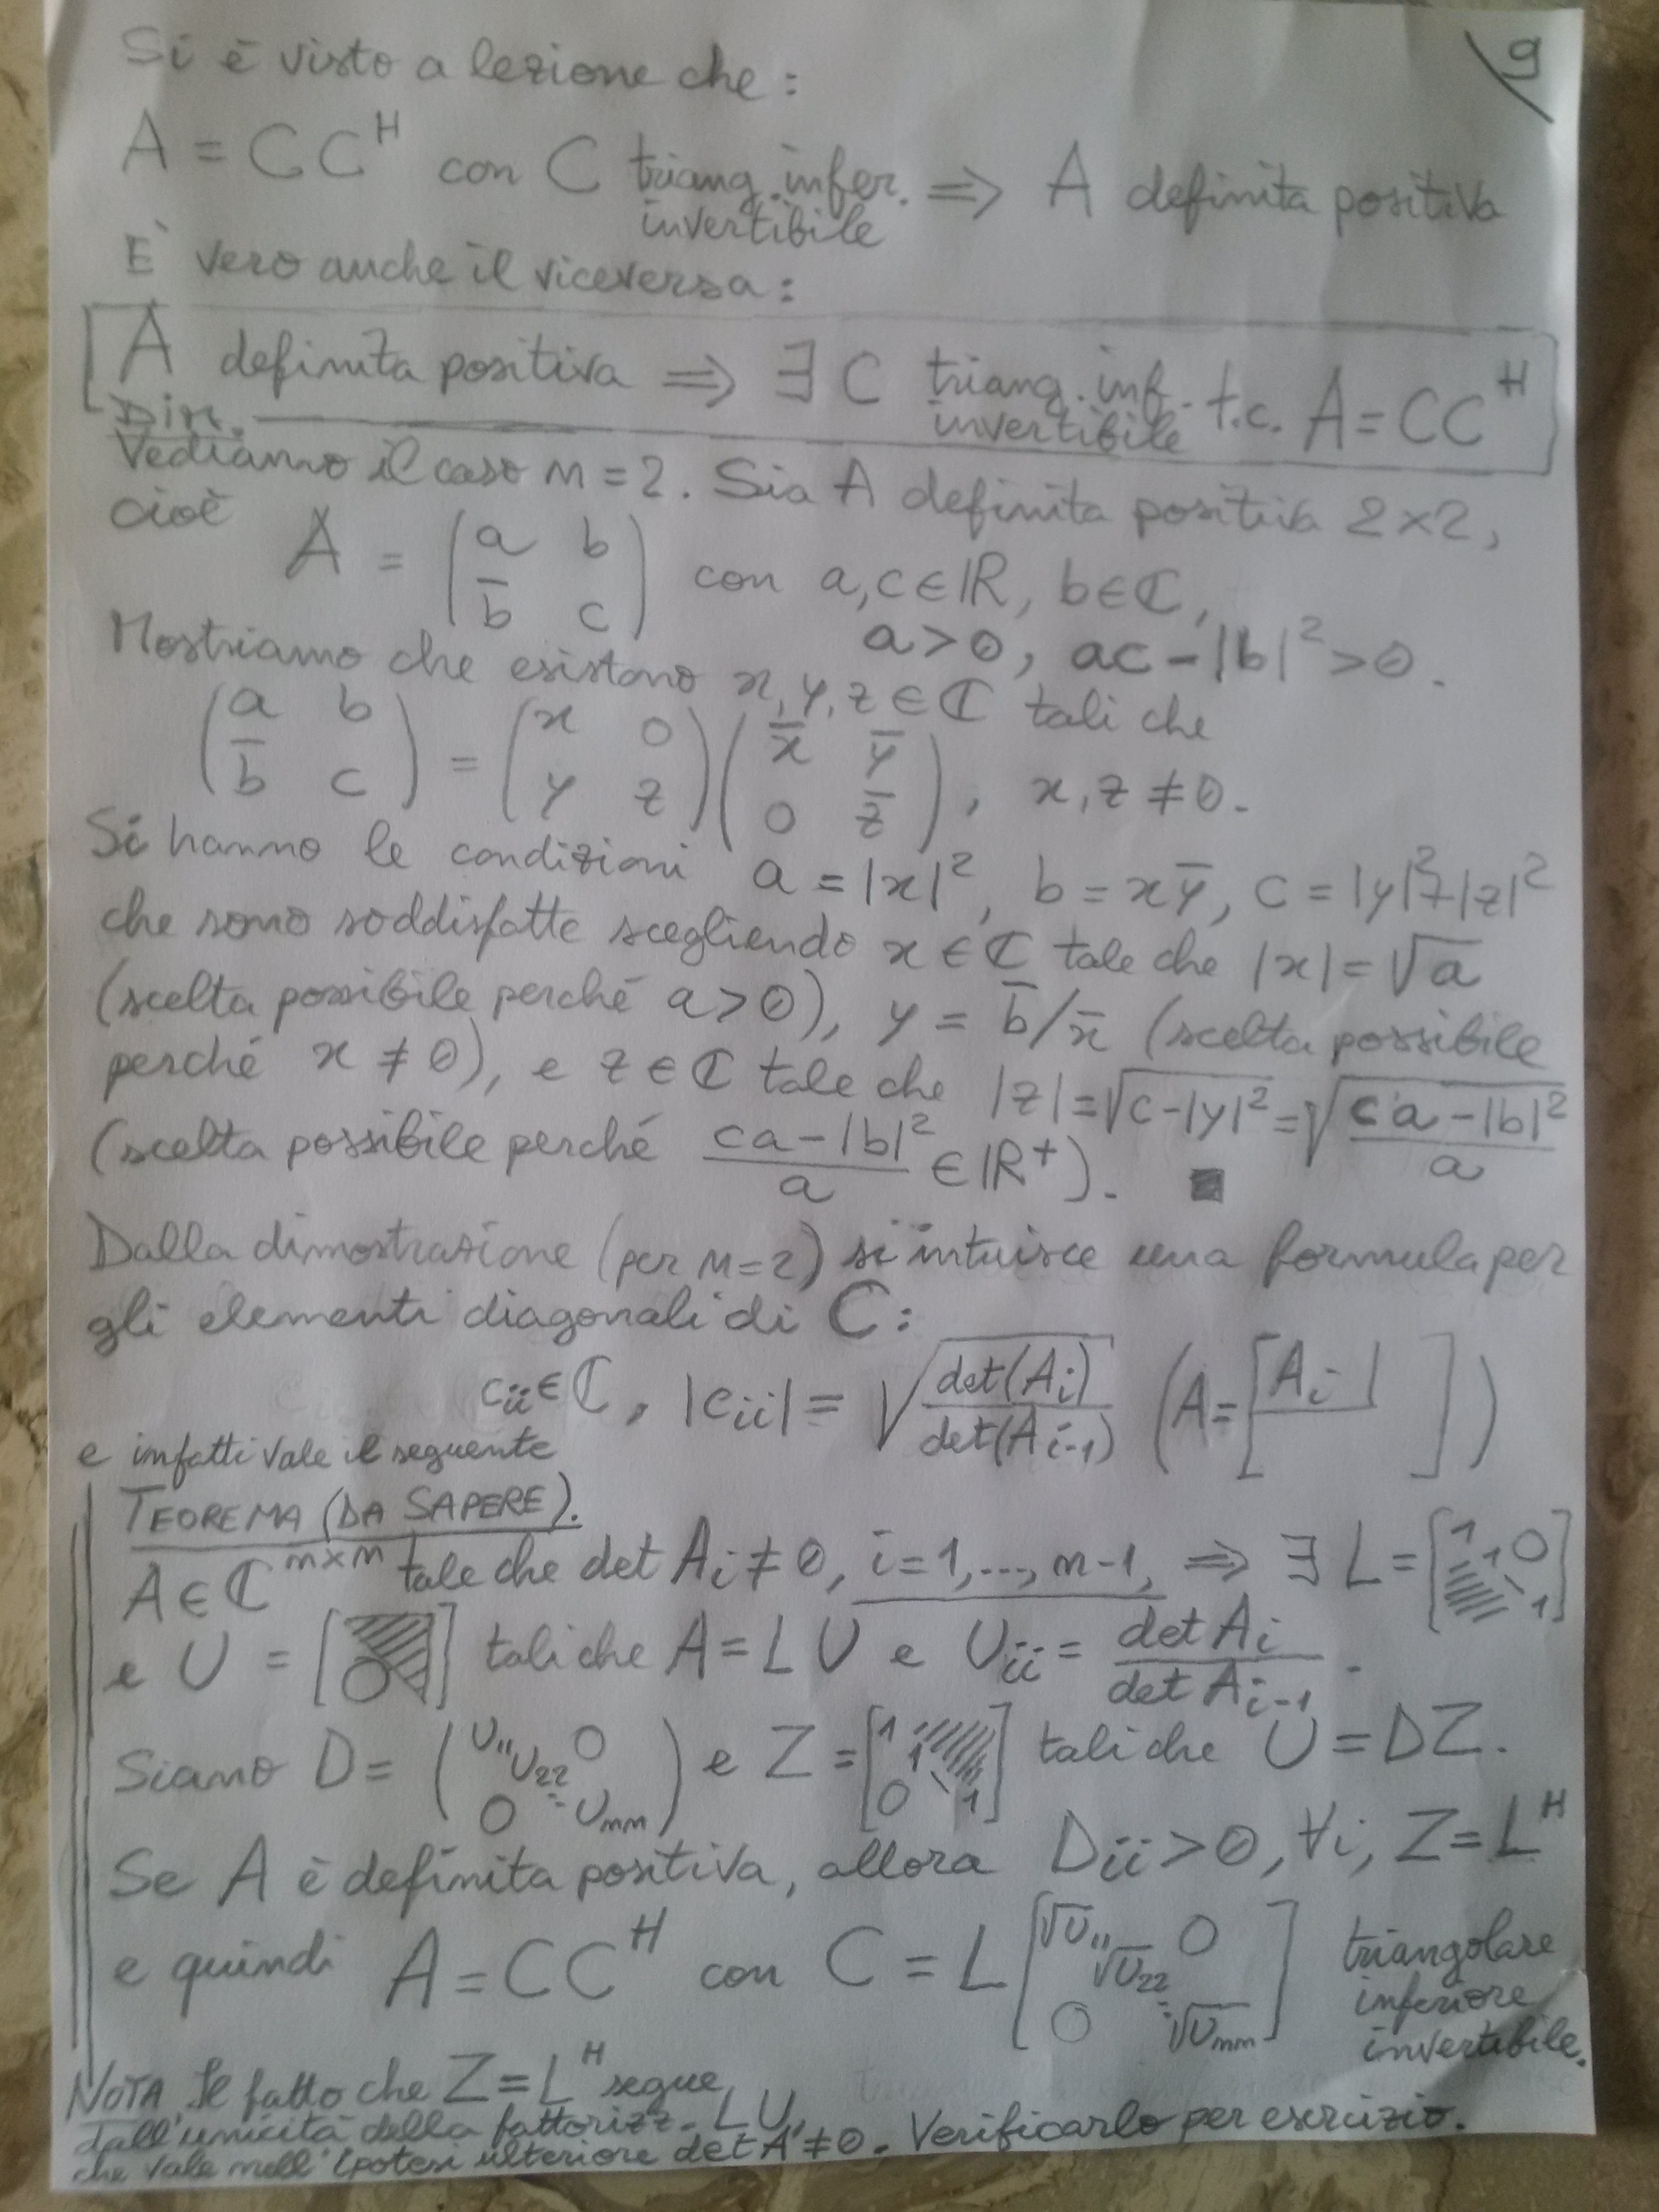 9
Si è visto a lezione che:
A = C C^H con C triang. infer. invertibile ⇒ A definita positiva
E' vero anche il viceversa:
A definita positiva ⇒ ∃ C triang. inf. invertibile t.c. A = CC^H
DIM.
Vediamo il caso n = 2. Sia A definita positiva 2×2,
cioè A = (a b; b̄ c) con a, c ∈ ℝ, b ∈ ℂ,
a > 0, ac - |b|² > 0.
Mostriamo che esistono x, y, z ∈ ℂ tali che
(a b; b̄ c) = (x 0; y z)(x̄ ȳ; 0 z̄), x, z ≠ 0.
Si hanno le condizioni a = |x|², b = xȳ, c = |y|² + |z|²
che sono soddisfatte scegliendo x ∈ ℂ tale che |x| = √a
(scelta possibile perché a > 0), y = b̄/x̄ (scelta possibile
perché x ≠ 0), e z ∈ ℂ tale che |z| = √(c - |y|²) = √((ca - |b|²)/a)
(scelta possibile perché (ca - |b|²)/a ∈ ℝ⁺). ■
Dalla dimostrazione (per n = 2) si intuisce una formula per
gli elementi diagonali di C:
c_ii ∈ ℂ, |c_ii| = √(det(A_i)/det(A_{i-1})) (A = [A_i ])
e infatti vale il seguente
TEOREMA (DA SAPERE).
A ∈ ℂ^{n×n} tale che det A_i ≠ 0, i = 1, ..., n-1, ⇒ ∃ L = [1 1 0 1]
e U = [0] tali che A = L U e U_ii = det A_i / det A_{i-1}.
Siamo D = (U_11 U_22 0; 0 U_nn) e Z = [1 1; 0 1] tali che U = DZ.
Se A è definita positiva, allora D_ii > 0, ∀i, Z = L^H
e quindi A = CC^H con C = L [√U_11 √U_22 0; 0 √U_nn] triangolare inferiore invertibile.
NOTA Il fatto che Z = L^H segue
dall'unicità della fattorizz. LU,
che vale nell'ipotesi ulteriore det A ≠ 0. Verificarlo per esercizio.